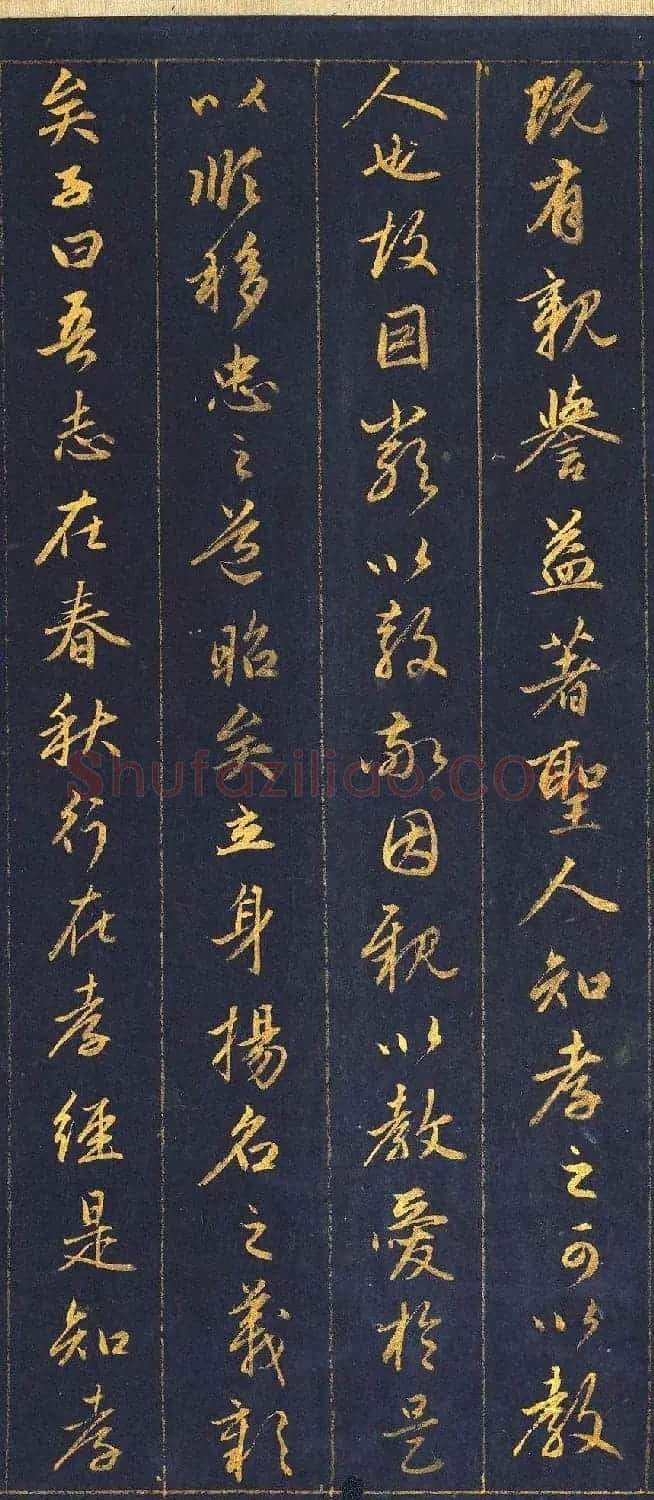 既有親譽益著聖人知孝之可以教
人也故因嚴以教敬因親以教愛於是
以順移忠之道昭矣立身揚名之義彰
矣子曰吾志在春秋行在孝經是知孝
Shufaziliao.com